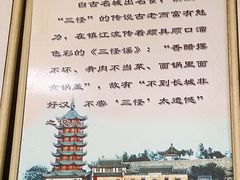 自古名城出名食，
“三怪”的传说古老而富有魅
力，在镇江流传着颇具顺口溜
色彩的《三怪谣》：“香醋摆
不坏、肴肉不当菜、面锅里面
煮锅盖”，故有“不到长城非
好汉，不尝‘三怪’太遗憾”
之